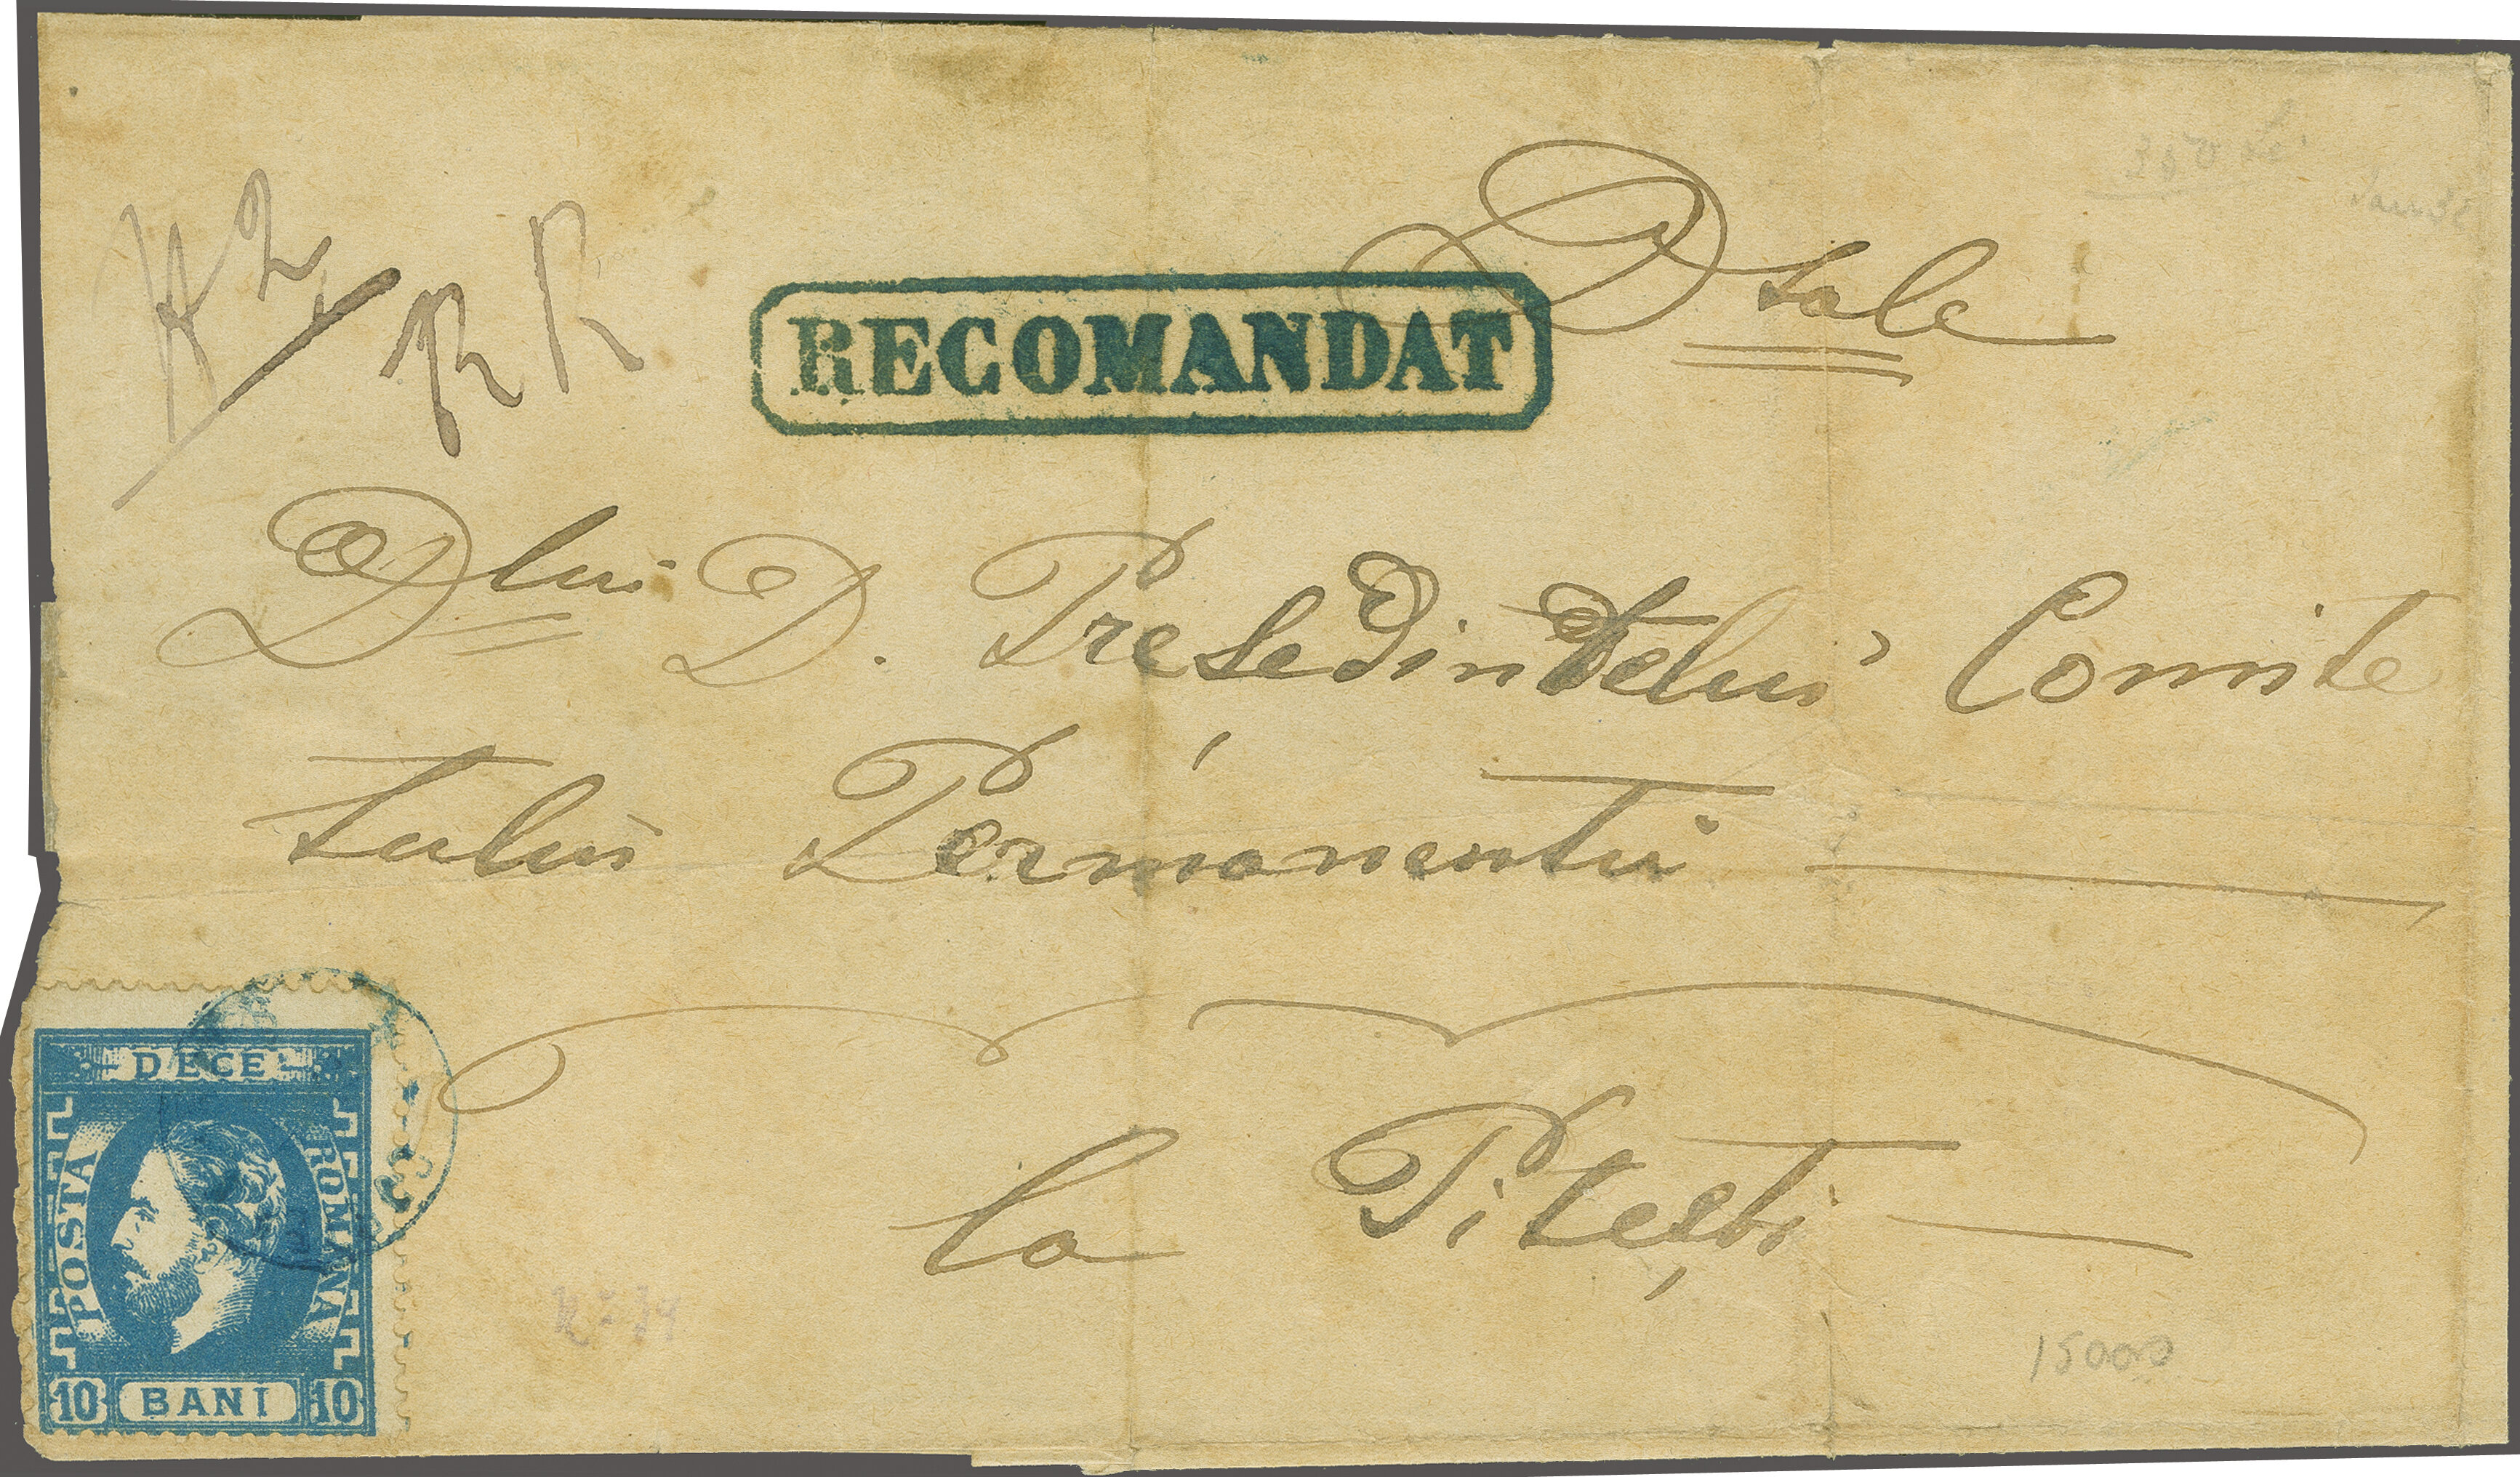 RECOMANDAT
Dsale
Dlui D. Presedintelui Comite
tului Permanentu
la Pitești
DECE
POSTA
ROMANA
10 BANI 10
15000